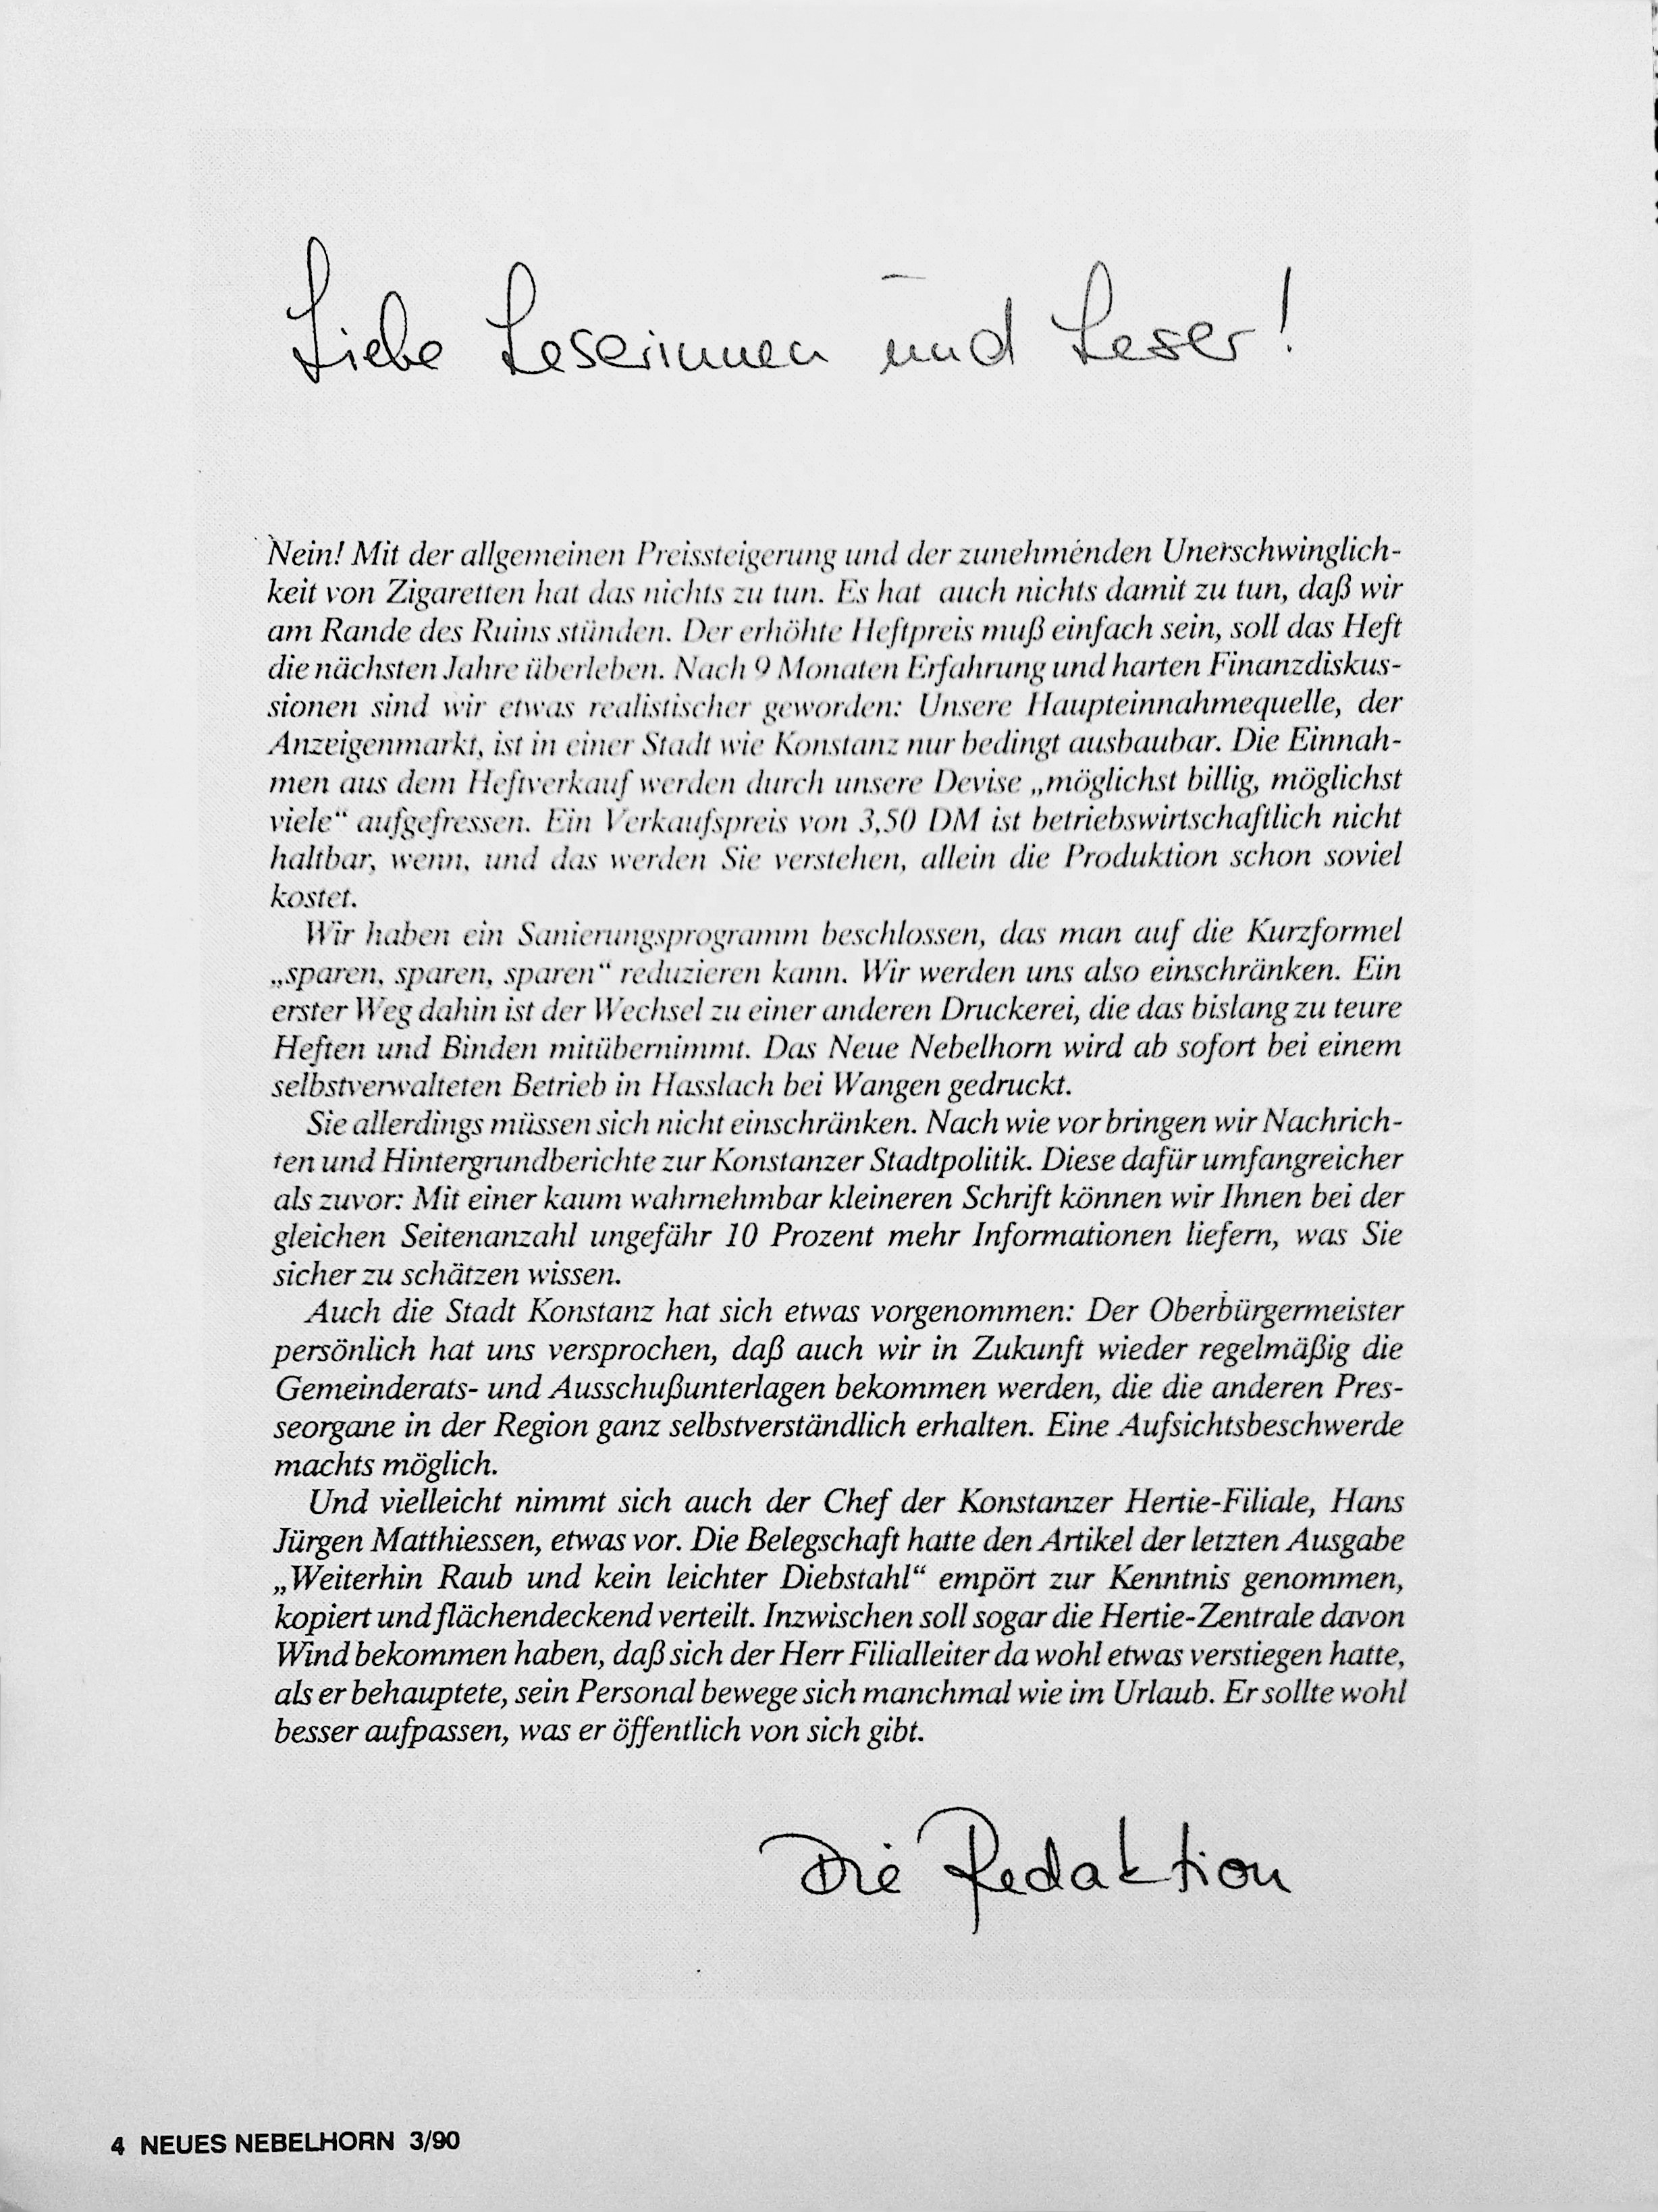 Liebe Leserinnen und Leser!
Nein! Mit der allgemeinen Preissteigerung und der zunehmenden Unerschwinglich-
keit von Zigaretten hat das nichts zu tun. Es hat auch nichts damit zu tun, daß wir
am Rande des Ruins stünden. Der erhöhte Heftpreis muß einfach sein, soll das Heft
die nächsten Jahre überleben. Nach 9 Monaten Erfahrung und harten Finanzdiskus-
sionen sind wir etwas realistischer geworden: Unsere Haupteinnahmequelle, der
Anzeigenmarkt, ist in einer Stadt wie Konstanz nur bedingt ausbaubar. Die Einnah-
men aus dem Heftverkauf werden durch unsere Devise „möglichst billig, möglichst
viele“ aufgefressen. Ein Verkaufspreis von 3,50 DM ist betriebswirtschaftlich nicht
haltbar, wenn, und das werden Sie verstehen, allein die Produktion schon soviel
kostet.
Wir haben ein Sanierungsprogramm beschlossen, das man auf die Kurzformel
„sparen, sparen, sparen“ reduzieren kann. Wir werden uns also einschränken. Ein
erster Weg dahin ist der Wechsel zu einer anderen Druckerei, die das bislang zu teure
Heften und Binden mitübernimmt. Das Neue Nebelhorn wird ab sofort bei einem
selbstverwalteten Betrieb in Hasslach bei Wangen gedruckt.
Sie allerdings müssen sich nicht einschränken. Nach wie vor bringen wir Nachrich-
ten und Hintergrundberichte zur Konstanzer Stadtpolitik. Diese dafür umfangreicher
als zuvor: Mit einer kaum wahrnehmbar kleineren Schrift können wir Ihnen bei der
gleichen Seitenanzahl ungefähr 10 Prozent mehr Informationen liefern, was Sie
sicher zu schätzen wissen.
Auch die Stadt Konstanz hat sich etwas vorgenommen: Der Oberbürgermeister
persönlich hat uns versprochen, daß auch wir in Zukunft wieder regelmäßig die
Gemeinderats- und Ausschußunterlagen bekommen werden, die die anderen Pres-
seorgane in der Region ganz selbstverständlich erhalten. Eine Aufsichtsbeschwerde
machts möglich.
Und vielleicht nimmt sich auch der Chef der Konstanzer Hertie-Filiale, Hans
Jürgen Matthiessen, etwas vor. Die Belegschaft hatte den Artikel der letzten Ausgabe
„Weiterhin Raub und kein leichter Diebstahl“ empört zur Kenntnis genommen,
kopiert und flächendeckend verteilt. Inzwischen soll sogar die Hertie-Zentrale davon
Wind bekommen haben, daß sich der Herr Filialleiter da wohl etwas verstiegen hatte,
als er behauptete, sein Personal bewege sich manchmal wie im Urlaub. Er sollte wohl
besser aufpassen, was er öffentlich von sich gibt.
Die Redaktion
4 NEUES NEBELHORN 3/90